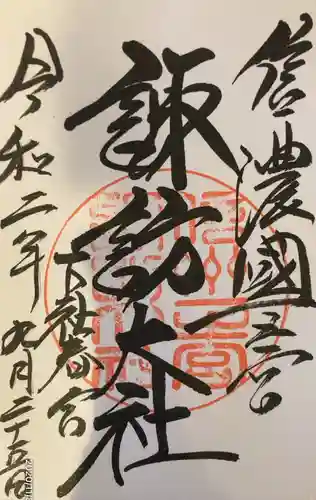 信濃國一之宮
諏訪大社
下社春宮
令和二年九月二十五日